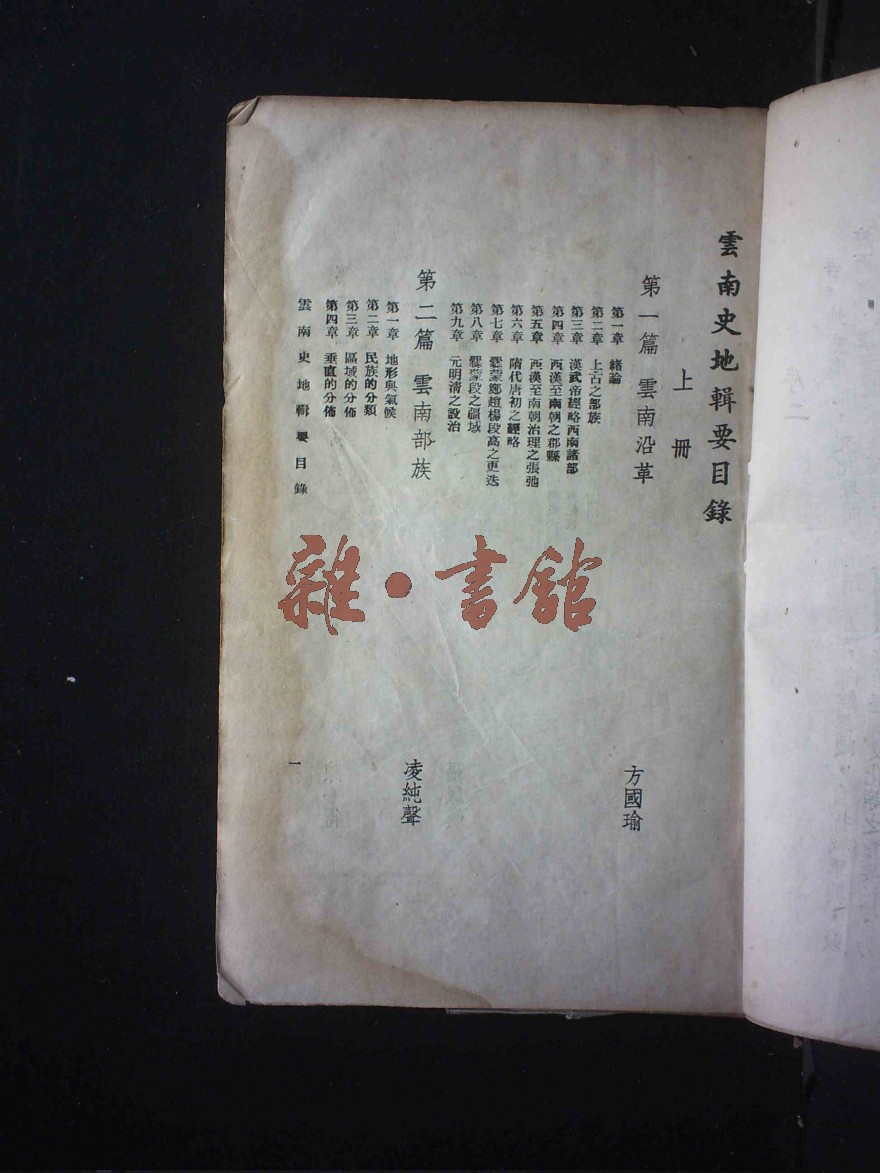 雲南史地輯要目錄
上冊
第一篇 雲南沿革 方國瑜
第一章 緒論
第二章 上古之部族
第三章 漢武帝經略西南諸部
第四章 西漢至南朝之郡縣
第五章 西漢至南朝治理之張弛
第六章 隋代唐初之經略
第七章 爨蒙鄭趙楊段高之更迭
第八章 爨蒙段之疆域
第九章 元明清之設治
第二篇 雲南部族 凌純聲
第一章 地形與氣候
第二章 民族的分類
第三章 區域的分佈
第四章 垂直的分佈
雲南史地輯要目錄 一
雜·書館